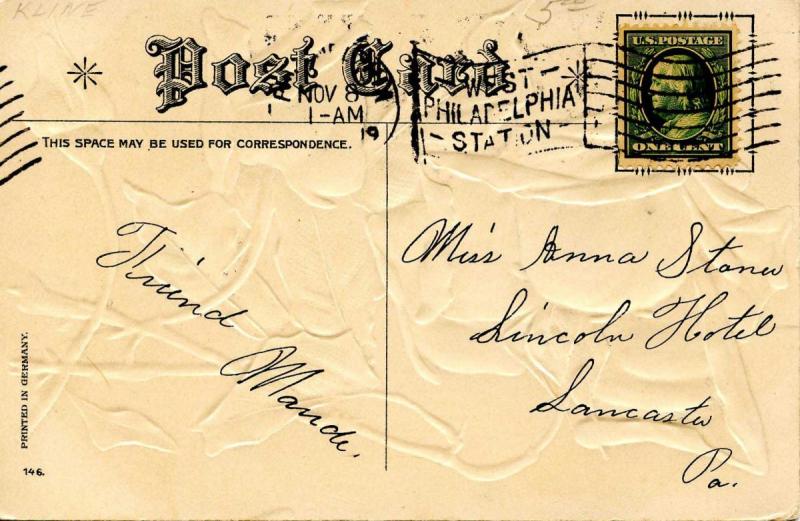 KLINE
5⁰⁰
Post Card
NOV 8
1-AM
19
WEST
PHILADELPHIA
STATION
U.S. POSTAGE
ONE CENT
THIS SPACE MAY BE USED FOR CORRESPONDENCE.
Friend
Maude.
Miss Anna Stoner
Lincoln Hotel
Lancaster
Pa.
PRINTED IN GERMANY.
146.